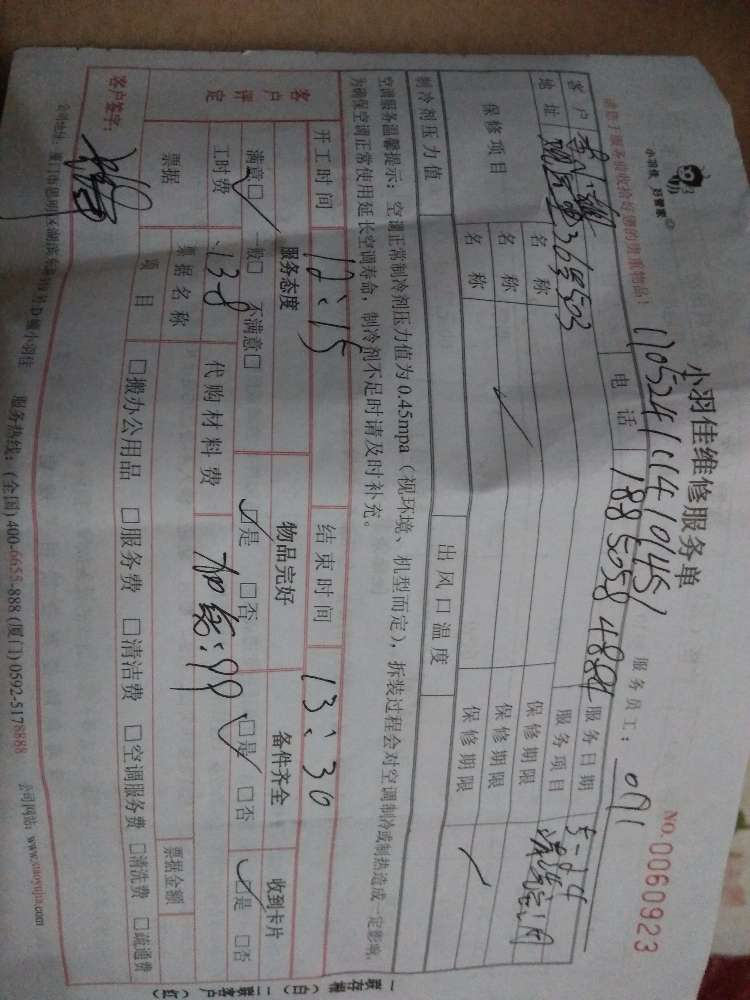 小羽佳 好管家
小羽佳维修服务单
NO.0060923
请您于服务前收拾好您的贵重物品!
服务员工:
客户
电话 188 5058 4884
服务日期
地址
服务项目
保修项目
名称
保修期限
名称
保修期限
名称
保修期限
制冷剂压力值
出风口温度
空调服务温馨提示:空调正常制冷剂压力值为0.45mpa(视环境、机型而定),拆装过程会对空调制冷或制热造成一定影响,
为确保空调正常使用延长空调寿命,制冷剂不足时请及时补充。
开工时间 12:15 结束时间 13:30
客户评定
服务态度 物品完好 备件齐全 收到卡片
满意□ 一般□ 不满意□ □是 □否 □是 □否 □是 □否
工时费 138 代购材料费 加氨:99
票据 票据名称 票据金额
项目 □搬办公用品 □服务费 □清洁费 □空调服务费 □清洗费 □疏通费
客户签字:
公司地址:厦门市思明区湖滨 小羽佳 服务热线:(全国)400-6655-888 (厦门)0592-5178888 公司网站:www.xiaoyujia.com
一联存根(白) 二联客户(红)